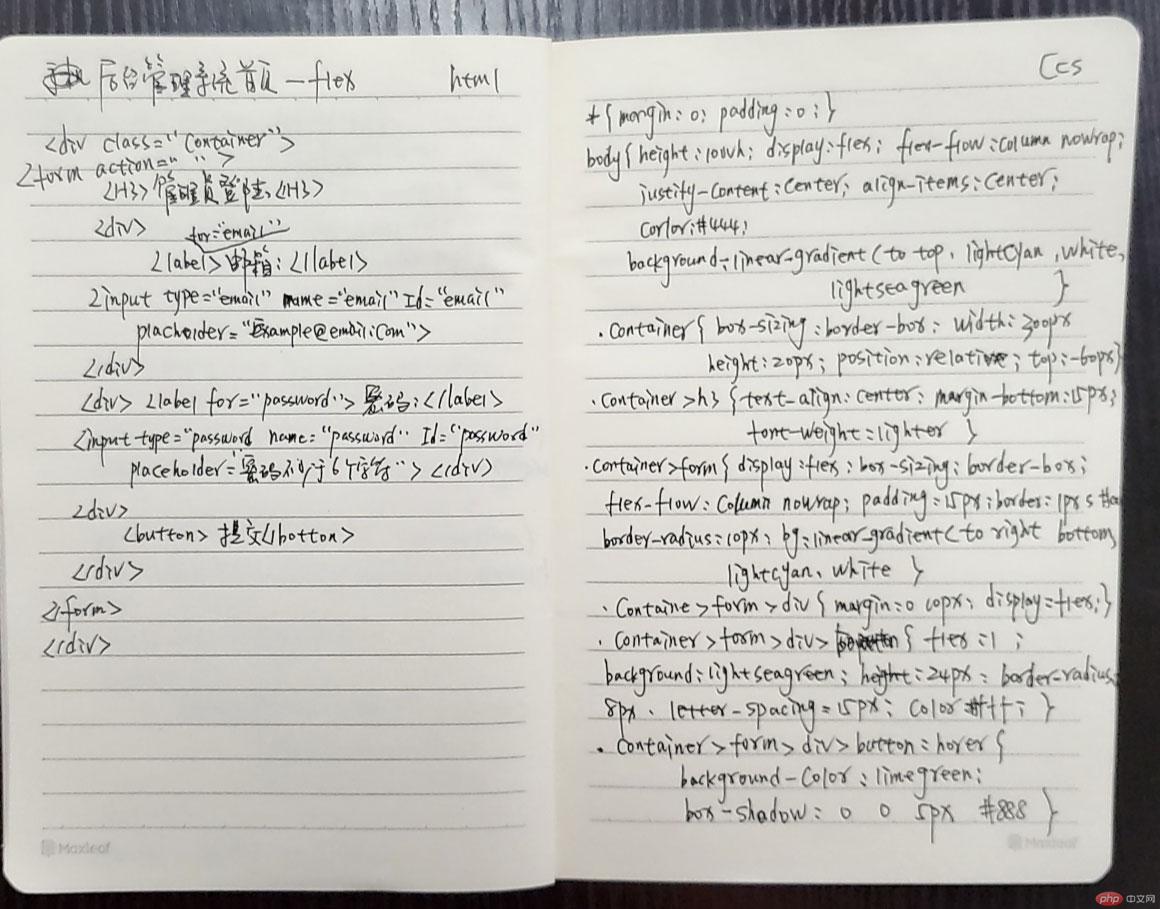 后台管理系统首页—flex html
<div class="Container">
<form action=" ">
<H3>管理员登陆<H3>
<div>
for="email"
<label>邮箱:</label>
<input type="email" name="email" Id="email"
placeholder="Example@email.com">
</div>
<div> <label for="password"> 密码:</label>
<input type="password name="password" Id="password"
placeholder="密码不少于6个字符"> </div>
<div>
<button> 提交</botton>
</div>
</form>
</div>
Maxleaf
Ccs
*{margin:0; padding:0;}
body{height:100vh; display:flex; flex-flow:column nowrap;
justify-content:center; align-items:center;
corlor:#444;
background:linear-gradient(to top, lightCyan, white,
lightseagreen }
.container{ box-sizing:border-box; width:300px
height:20px; position:relative; top:-60px}
.container>h3 {text-align:center; margin-bottom:15px;
font-weight:lighter }
.container>form{ display:flex; box-sizing:border-box;
flex-flow:Column nowrap; padding:15px;border:1px s #aa
border-radius:10px; bg:linear-gradient(to right bottom,
lightcyan, white }
.Containe>form>div{ margin:0 10px; display:flex;}
.Container>form>div> { flex:1 ;
background:lightseagreen; height:24px; border-radius:
8px. letter-spacing=15px; color #fff; }
.Container>form>div>button:horer{
background-Color:limegreen;
box-shadow: 0 0 5px #888 }
Maxleaf
php 中文网